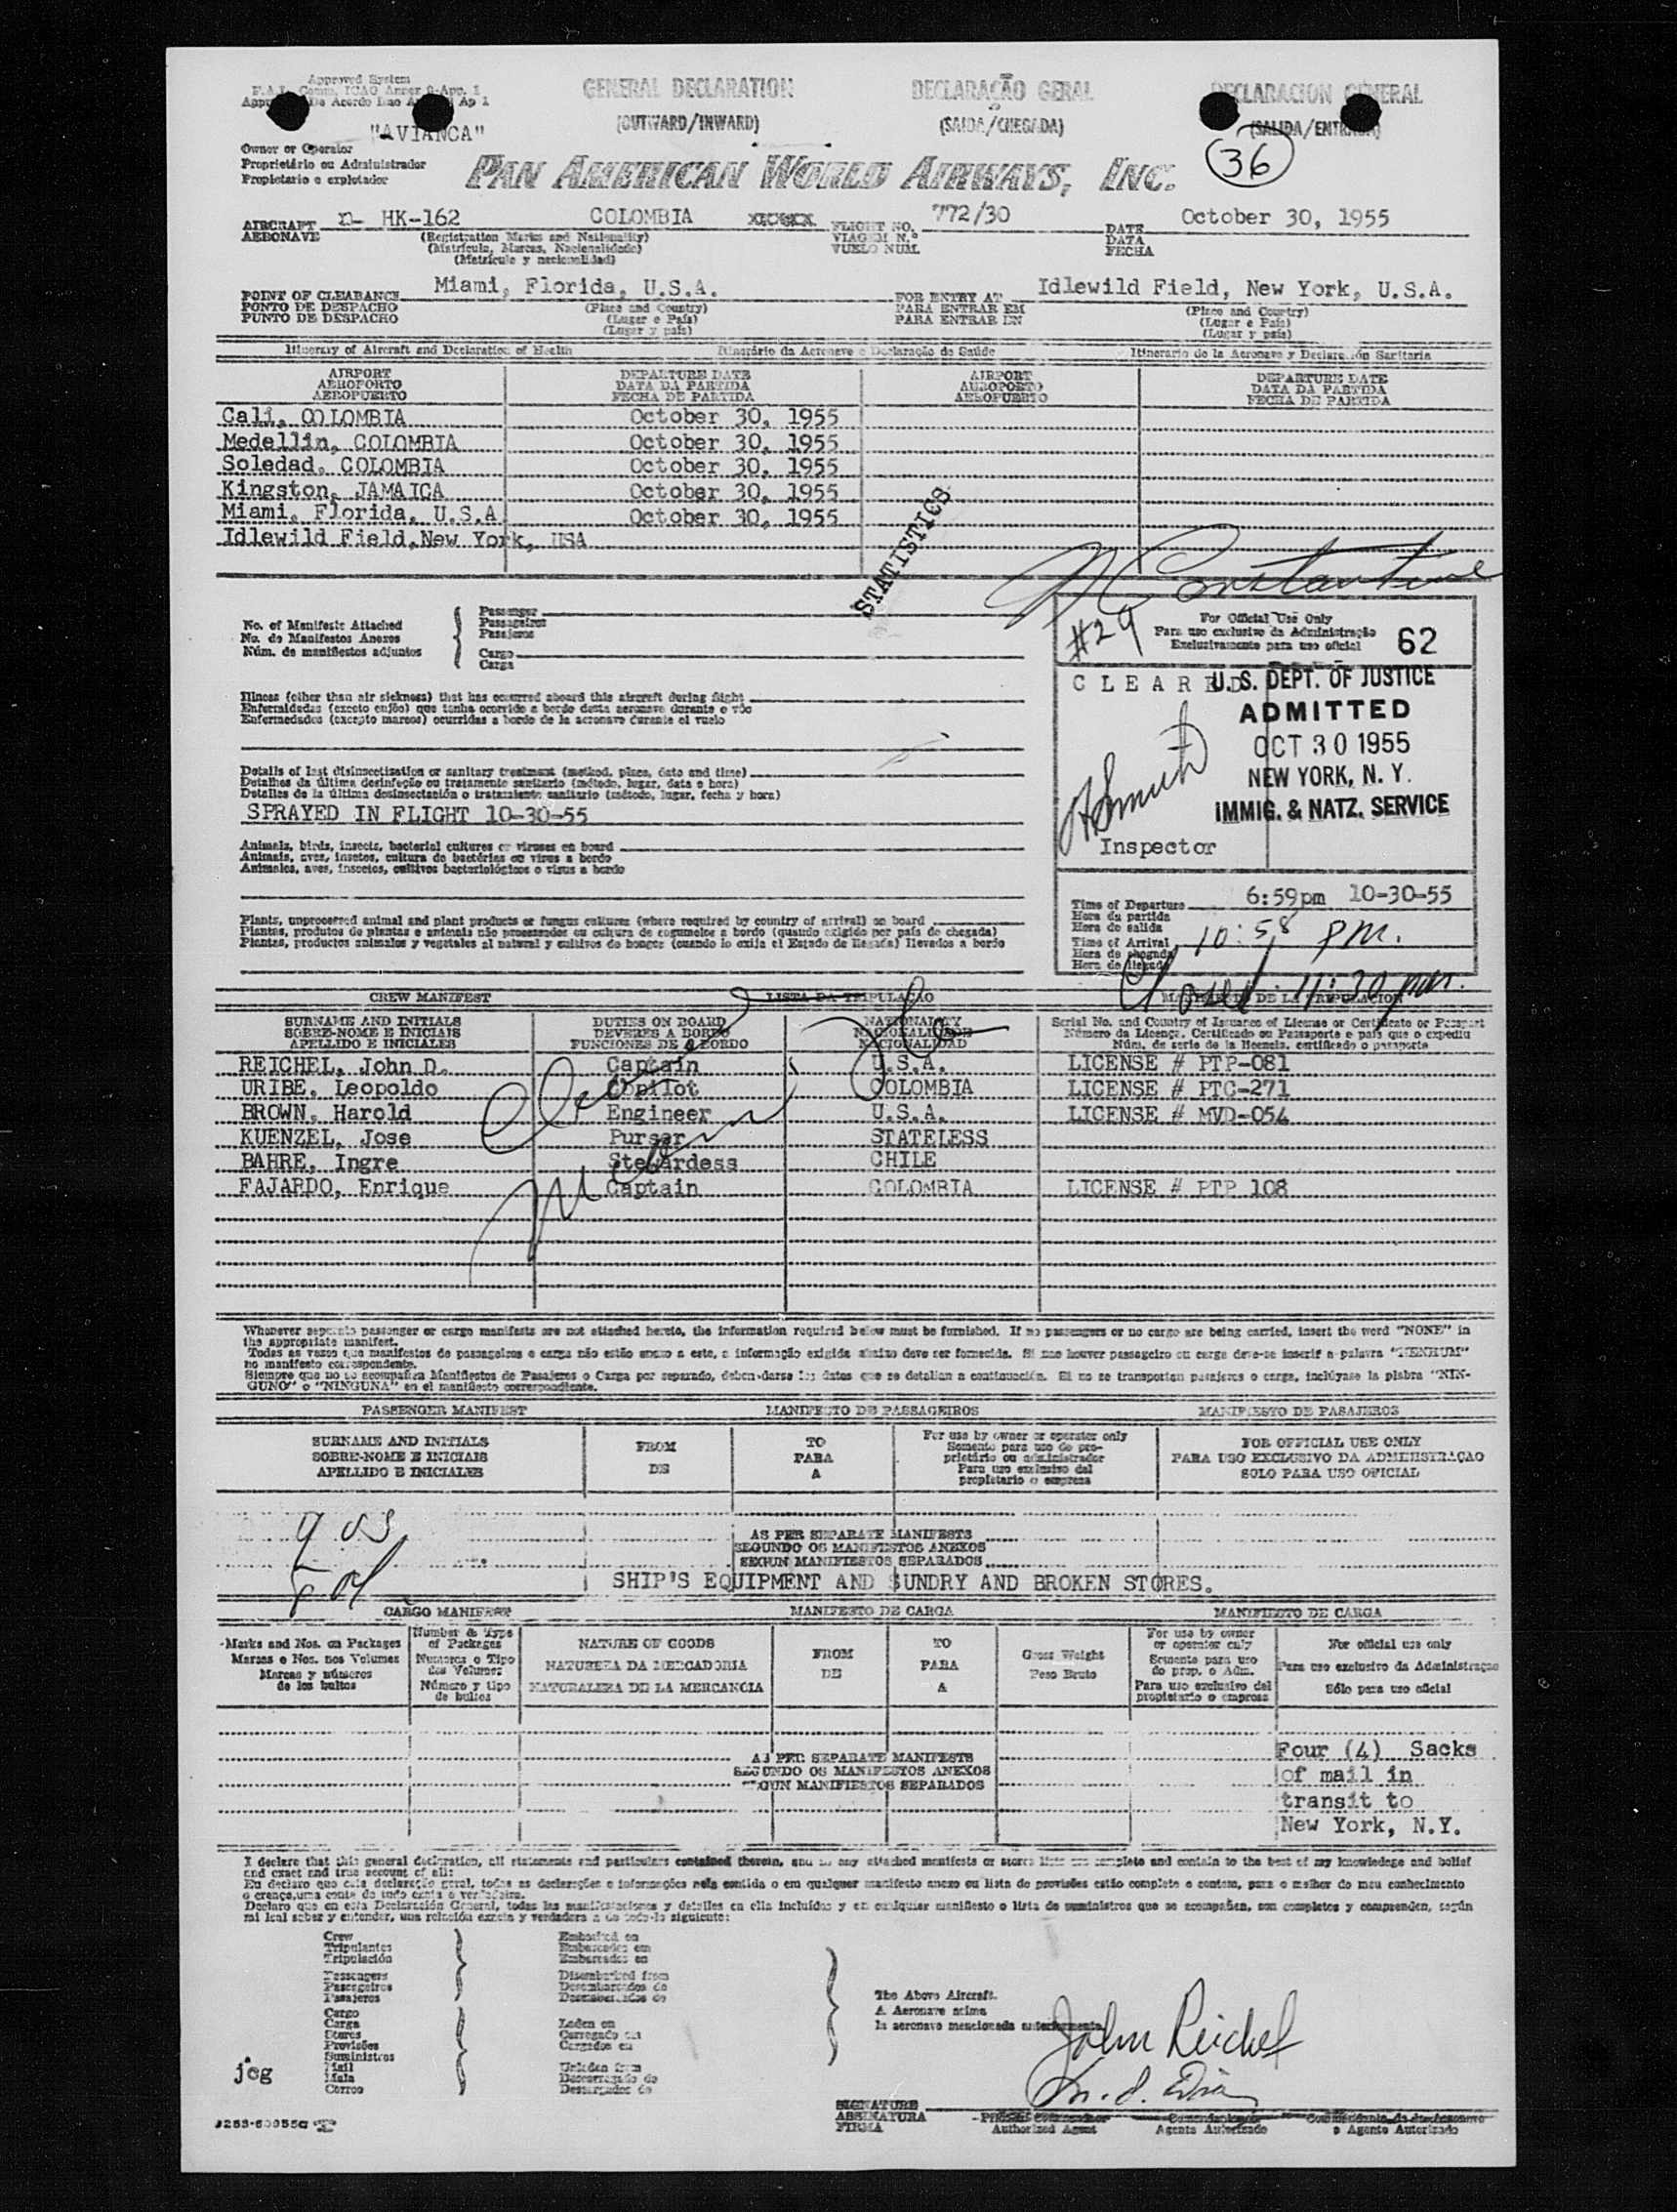 Approved System
F.A.L. Comm. ICAO Annex 9-App. 1
De Acordo Dao Ap 1
"AVIANCA"
GENERAL DECLARATION
(OUTWARD/INWARD)
DECLARAÇÃO GERAL
(SAIDA/CHEGADA)
DECLARACION GENERAL
(SALIDA/ENTRADA)
36
Owner or Operator
Proprietário ou Administrador
Propietario o explotador
PAN AMERICAN WORLD AIRWAYS, INC.
AIRCRAFT HK-162 COLOMBIA FLIGHT NO. 772/30 DATE October 30, 1955
AERONAVE (Registration Marks and Nationality) VIAGEM N.º DATA
(Matrícula, Marcas, Nacionalidade) VUELO NUM. FECHA
(Matrícula y nacionalidad)
POINT OF CLEARANCE Miami, Florida, U.S.A. FOR ENTRY AT Idlewild Field, New York, U.S.A.
PONTO DE DESPACHO (Place and Country) PARA ENTRAR EM (Place and Country)
PUNTO DE DESPACHO (Lugar e País) PARA ENTRAR EN (Lugar e País)
(Lugar y país) (Lugar y país)
Itinerary of Aircraft and Declaration of Health Itinerário da Aeronave e Declaração de Saúde Itinerario de la Aeronave y Declaración Sanitaria
AIRPORT DEPARTURE DATE AIRPORT DEPARTURE DATE
AEROPORTO DATA DA PARTIDA AEROPORTO DATA DA PARTIDA
AEROPUERTO FECHA DE PARTIDA AEROPUERTO FECHA DE PARTIDA
Cali, COLOMBIA October 30, 1955
Medellin, COLOMBIA October 30, 1955
Soledad, COLOMBIA October 30, 1955
Kingston, JAMAICA October 30, 1955
Miami, Florida, U.S.A October 30, 1955
Idlewild Field,New York, USA
STATISTICS
Constantine
No. of Manifests Attached
No. de Manifestos Anexos
Núm. de manifiestos adjuntos
Passenger
Passageiros
Pasajeros
Cargo
Carga
#29
For Official Use Only
Para uso exclusivo da Administração
Exclusivamente para uso oficial
62
CLEARED
U.S. DEPT. OF JUSTICE
ADMITTED
OCT 30 1955
NEW YORK, N. Y.
IMMIG. & NATZ. SERVICE
Inspector
Illness (other than air sickness) that has occurred aboard this aircraft during flight
Enfermidades (exceto enjôo) que tenha ocorrido a bordo desta aeronave durante o vôo
Enfermedades (excepto mareos) ocurridas a bordo de la aeronave durante el vuelo
Details of last disinsectization or sanitary treatment (method, place, date and time)
Detalhes da última desinfeção ou tratamento sanitario (método, lugar, data e hora)
Detalles de la última desinsectación o tratamiento sanitario (método, lugar, fecha y hora)
SPRAYED IN FLIGHT 10-30-55
Animals, birds, insects, bacterial cultures or viruses on board
Animais, aves, insetos, cultura de bactérias ou virus a bordo
Animales, aves, insectos, cultivos bacteriológicos o virus a bordo
Plants, unprocessed animal and plant products or fungus cultures (where required by country of arrival) on board
Plantas, produtos de plantas e animais não processados ou cultura de cogumelos a bordo (quando exigido por país de chegada)
Plantas, productos animales y vegetales al natural y cultivos de hongos (cuando lo exija el Estado de llegada) llevados a bordo
Time of Departure 6:59pm 10-30-55
Hora da partida
Hora de salida
Time of Arrival 10:58 PM.
Hora de chegada
Hora de llegada
Closed 11:30 pm.
CREW MANIFEST LISTA DA TRIPULAÇÃO MANIFIESTO DE LA TRIPULACION
SURNAME AND INITIALS DUTIES ON BOARD NATIONALITY Serial No. and Country of Issuance of License or Certificate or Passport
SOBRE-NOME E INICIAIS DEVERES A BORDO NACIONALIDADE Número da Licença, Certificado ou Passaporte e país que o expediu
APELLIDO E INICIALES FUNCIONES DE A BORDO NACIONALIDAD Núm. de serie de la licencia, certificado o pasaporte
REICHEL, John D. Captain U.S.A. LICENSE # PTP-081
URIBE, Leopoldo Copilot COLOMBIA LICENSE # PTC-271
BROWN, Harold Engineer U.S.A. LICENSE # MVD-054
KUENZEL, Jose Purser STATELESS
BAHRE, Ingre Stewardess CHILE
FAJARDO, Enrique Captain COLOMBIA LICENSE # PTP 108
Whenever separate passenger or cargo manifests are not attached hereto, the information required below must be furnished. If no passengers or no cargo are being carried, insert the word "NONE" in
the appropriate manifest.
Todas as vezes que manifestos de passageiros e carga não estão anexo a este, a informação exigida abaixo deve ser fornecida. Si nao houver passageiro ou carga deve-se inserir a palavra "NENHUM"
no manifesto correspondente.
Siempre que no se acompañen Manifiestos de Pasajeros o Carga por separado, deben darse los datos que se detallan a continuación. Si no se transportan pasajeros o carga, inclúyase la plabra "NIN-
GUNO" o "NINGUNA" en el manifiesto correspondiente.
PASSENGER MANIFEST MANIFESTO DE PASSAGEIROS MANIFIESTO DE PASAJEROS
SURNAME AND INITIALS FROM TO For use by owner or operator only FOR OFFICIAL USE ONLY
SOBRE-NOME E INICIAIS DE PARA Somente para uso do proprietário ou administrador PARA USO EXCLUSIVO DA ADMINISTRAÇAO
APELLIDO E INICIALES A Para uso exclusivo del propietario o empresa SOLO PARA USO OFICIAL
AS PER SEPARATE MANIFESTS
SEGUNDO OS MANIFESTOS ANEXOS
SEGUN MANIFIESTOS SEPARADOS
SHIP'S EQUIPMENT AND SUNDRY AND BROKEN STORES.
CARGO MANIFEST MANIFESTO DE CARGA MANIFIESTO DE CARGA
Marks and Nos. on Packages Number & Type of Packages NATURE OF GOODS FROM TO Gross Weight For use by owner or operator only For official use only
Marcas e Nos. nos Volumes Numeros o Tipo dos Volumes NATUREZA DA MERCADORIA DE PARA Peso Bruto Somente para uso do prop. o Adm. Para uso exclusivo da Administraçao
Marcas y números de los bultos Número y tipo de bultos NATURALEZA DE LA MERCANCIA A Para uso exclusivo del propietario o empresa Sólo para uso oficial
AS PER SEPARATE MANIFESTS
SEGUNDO OS MANIFESTOS ANEXOS
SEGUN MANIFIESTOS SEPARADOS
Four (4) Sacks
of mail in
transit to
New York, N.Y.
I declare that this general declaration, all statements and particulars contained therein, and in any attached manifests or stores lists are complete and contain to the best of my knowledge and belief
and exact and true account of all:
Eu declaro que esta declaração geral, todas as declarações e informações nela contida o em qualquer manifesto anexo ou lista de provisões estão completo e contem, para o melhor do meu conhecimento
o crença,uma conta de tudo exata e verdadeira.
Declaro que en esta Declaración General, todas las manifestaciones y detalles en ella incluídos y en cualquier manifiesto o lista de suministros que se acompañen, son completos y comprenden, según
mi leal saber y entender, una relación exacta y verdadera de todo lo siguiente:
Crew Embarked on
Tripulantes Embarcados em
Tripulación Embarcados en
Passengers Disembarked from
Passageiros Desembarcados de
Pasajeros Desembarcados de
Cargo
Carga Laden on
Stores Carregado em
Provisões Cargados en
Suministros
Mail Unladen from
Mala Descarregado de
Correo Descargados de
The Above Aircraft.
A Aeronave acima
la aeronave mencionada anteriormente
John Reichel
jcg
SIGNATURE
ASSINATURA
FIRMA
Authorized Agent Agente Autorizado o Agente Autorizado